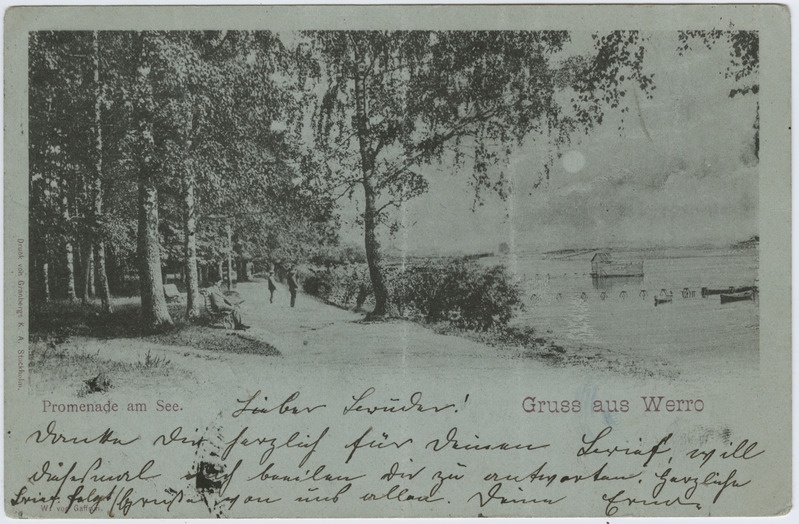 Druck von Granbergs K. A. Stockholm.
Promenade am See.
Gruss aus Werro
Lieber Bruder!
Danke Dir herzlich für Deinen Brief, will
diesesmal mich beeilen dir zu antworten. Herzliche
Brief folgt / Grüße von uns allen. Deine
W. von Gaffron.